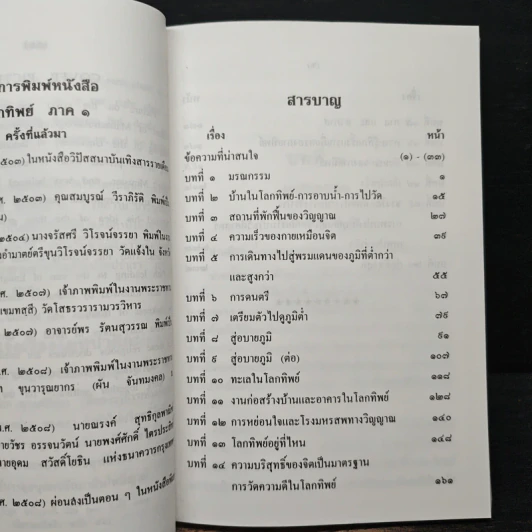 การพิมพ์หนังสือ
ทิพย์ ภาค ๑
ครั้งที่แล้วมา
๕๐๓) ในหนังสือวิปัสสนาบันเทิงสารรายเดือน
ศ. ๒๕๐๓) คุณสมบูรณ์ วีราภิรัติ พิมพ์
น)
๒๕๐๔) นางจรัสศรี วิโรจน์จรรยา พิมพ์ใน
อำมาตย์ตรีขุนวิโรจน์จรรยา วัดแจ้งใน จังหวัด
ศ. ๒๕๐๗) เจ้าภาพพิมพ์ในงานพระราช
เขมทสฺสี) วัดโสธรวรารามวรวิหาร
๒๕๐๗) อาจารย์พร รัตนสุวรรณ พิมพ์
ศ. ๒๕๐๘) เจ้าภาพพิมพ์ในงานพระราช
ขุนวารุณยากร (ผัน จันทมงคล)
.ศ. ๒๕๐๘) นายณรงค์ สุทธิกุลพาณิช
ายวัชร อรรจนวัตน์ นายพงศ์ศักดิ์ ไตรประสิทธิ์
ายอุดม สวัสดิ์โยธิน แห่งธนาคารกรุงเทพ
ศ. ๒๕๐๘) ผ่อนส่งเป็นตอน ๆ ในหนังสือ
สารบาญ
เรื่อง หน้า
ข้อความที่น่าสนใจ (๑) - (๓๓)
บทที่ ๑ มรณกรรม ๑
บทที่ ๒ บ้านในโลกทิพย์-การอาบน้ำ-การไปวัด ๑๕
บทที่ ๓ สถานที่พักฟื้นของวิญญาณ ๒๗
บทที่ ๔ ความเร็วของกายเหมือนจิต ๓๙
บทที่ ๕ การเดินทางไปสู่พรมแดนของภูมิที่ต่ำกว่า
และสูงกว่า ๕๕
บทที่ ๖ การดนตรี ๖๗
บทที่ ๗ เตรียมตัวไปดูภูมิต่ำ ๗๙
บทที่ ๘ สู่อบายภูมิ ๙๑
บทที่ ๙ สู่อบายภูมิ (ต่อ) ๑๐๗
บทที่ ๑๐ ทะเลในโลกทิพย์ ๑๑๘
บทที่ ๑๑ งานก่อสร้างบ้านและอาคารในโลกทิพย์ ๑๒๘
บทที่ ๑๒ การหย่อนใจและโรงมหรสพทางวิญญาณ ๑๔๐
บทที่ ๑๓ โลกทิพย์อยู่ที่ไหน ๑๔๘
บทที่ ๑๔ ความบริสุทธิ์ของจิตเป็นมาตรฐาน
การวัดความดีในโลกทิพย์ ๑๖๑